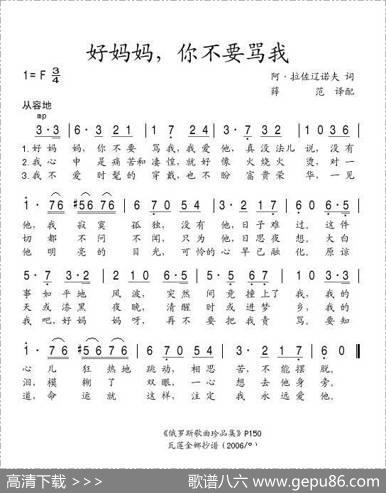 好妈妈，你不要骂我
1=F 3/4
阿·拉佐辽诺夫 词
薛 范 译配
从容地
mp
3·3 | 6 3 2 1 | 1 7 2 4 | 3·7 | 7 3 2 1 | 1 7 6
1.好 妈 妈，你 不 要 骂 我，我 爱 他，真 没 法儿 说，没 有
2.我 心 中 是 痛苦 和 凄 惶，就 好 像 火 烧 火 烫，对 一
3.我 不 爱 时 髦 的 穿 戴，也 不 盼 富 贵 荣 华，一 见
他，我 寂 寞 孤 独，没 有 他，日 子 难 过。这 件
切 都 不 问 不 闻，只 为 他，日 思 夜 想。大 白
他 明 亮 的 目 光，可 怜 的 心 早 已 融 化。原 谅
事 如 平 地 风 波，突 然 间 竟 撞 上 了 我，我 的
天 或 漆 黑 夜 晚，清 醒 时 或 进 梦 乡，我 的
我 吧，好 妈 妈 呀，再 不 要 把 我 责 骂。要 知
心 儿 狂 热 地 跳 动，相 思 苦，不 能 摆 脱。
泪，模 糊 了 双 眼，一 心 想 去 他 身 旁。
道，命 运 就 这 样，注 定 我 永 远 爱 他。
《俄罗斯歌曲珍品集》P150
瓦莲金娜抄谱（2006/9）
高清下载 >>>
歌谱八六 www.gepu86.com